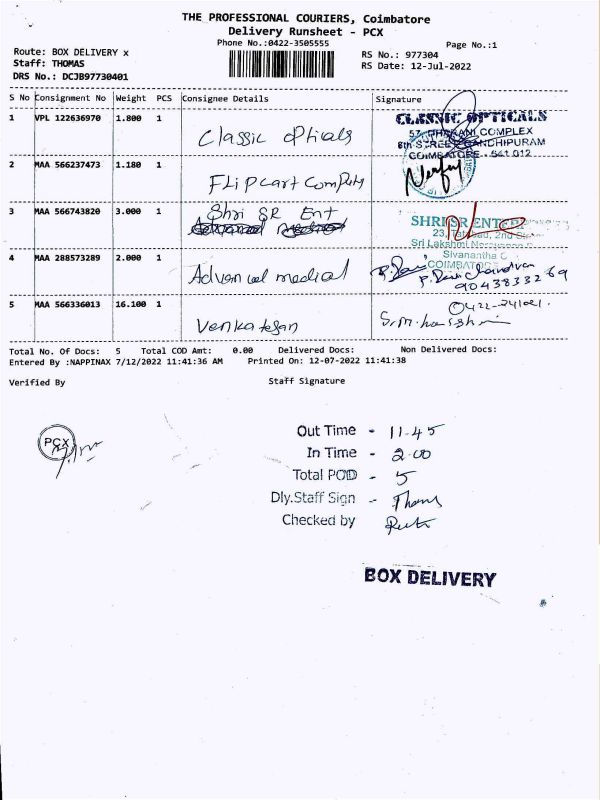 THE PROFESSIONAL COURIERS, Coimbatore
Delivery Runsheet - PCX
Phone No.:0422-3505555
Page No.:1
Route: BOX DELIVERY x
Staff: THOMAS
DRS No.: DCJB97730401
RS No.: 977304
RS Date: 12-Jul-2022
S No Consignment No Weight PCS Consignee Details Signature
1 VPL 122636970 1.800 1 Classic opticals
CLASSIC OPTICALS
57, DHARANI COMPLEX
6th STREET GANDHIPURAM
COIMBATORE - 641 012
2 MAA 566237473 1.180 1 Flipcart
3 MAA 566743820 3.000 1 Shri SR Ent
SHRI SR ENTER
23, 2nd
Sri Lakshmi
Sivanantha C
COIMBATORE
4 MAA 288573289 2.000 1 Advanced medical
9043833269
5 MAA 566336013 16.100 1 Venkatesan
Total No. Of Docs: 5 Total COD Amt: 0.00 Delivered Docs: Non Delivered Docs:
Entered By :NAPPINAX 7/12/2022 11:41:36 AM Printed On: 12-07-2022 11:41:38
Verified By Staff Signature
PCX
Out Time - 11-45
In Time - 2.00
Total POD - 5
Dly.Staff Sign - Thoms
Checked by
BOX DELIVERY